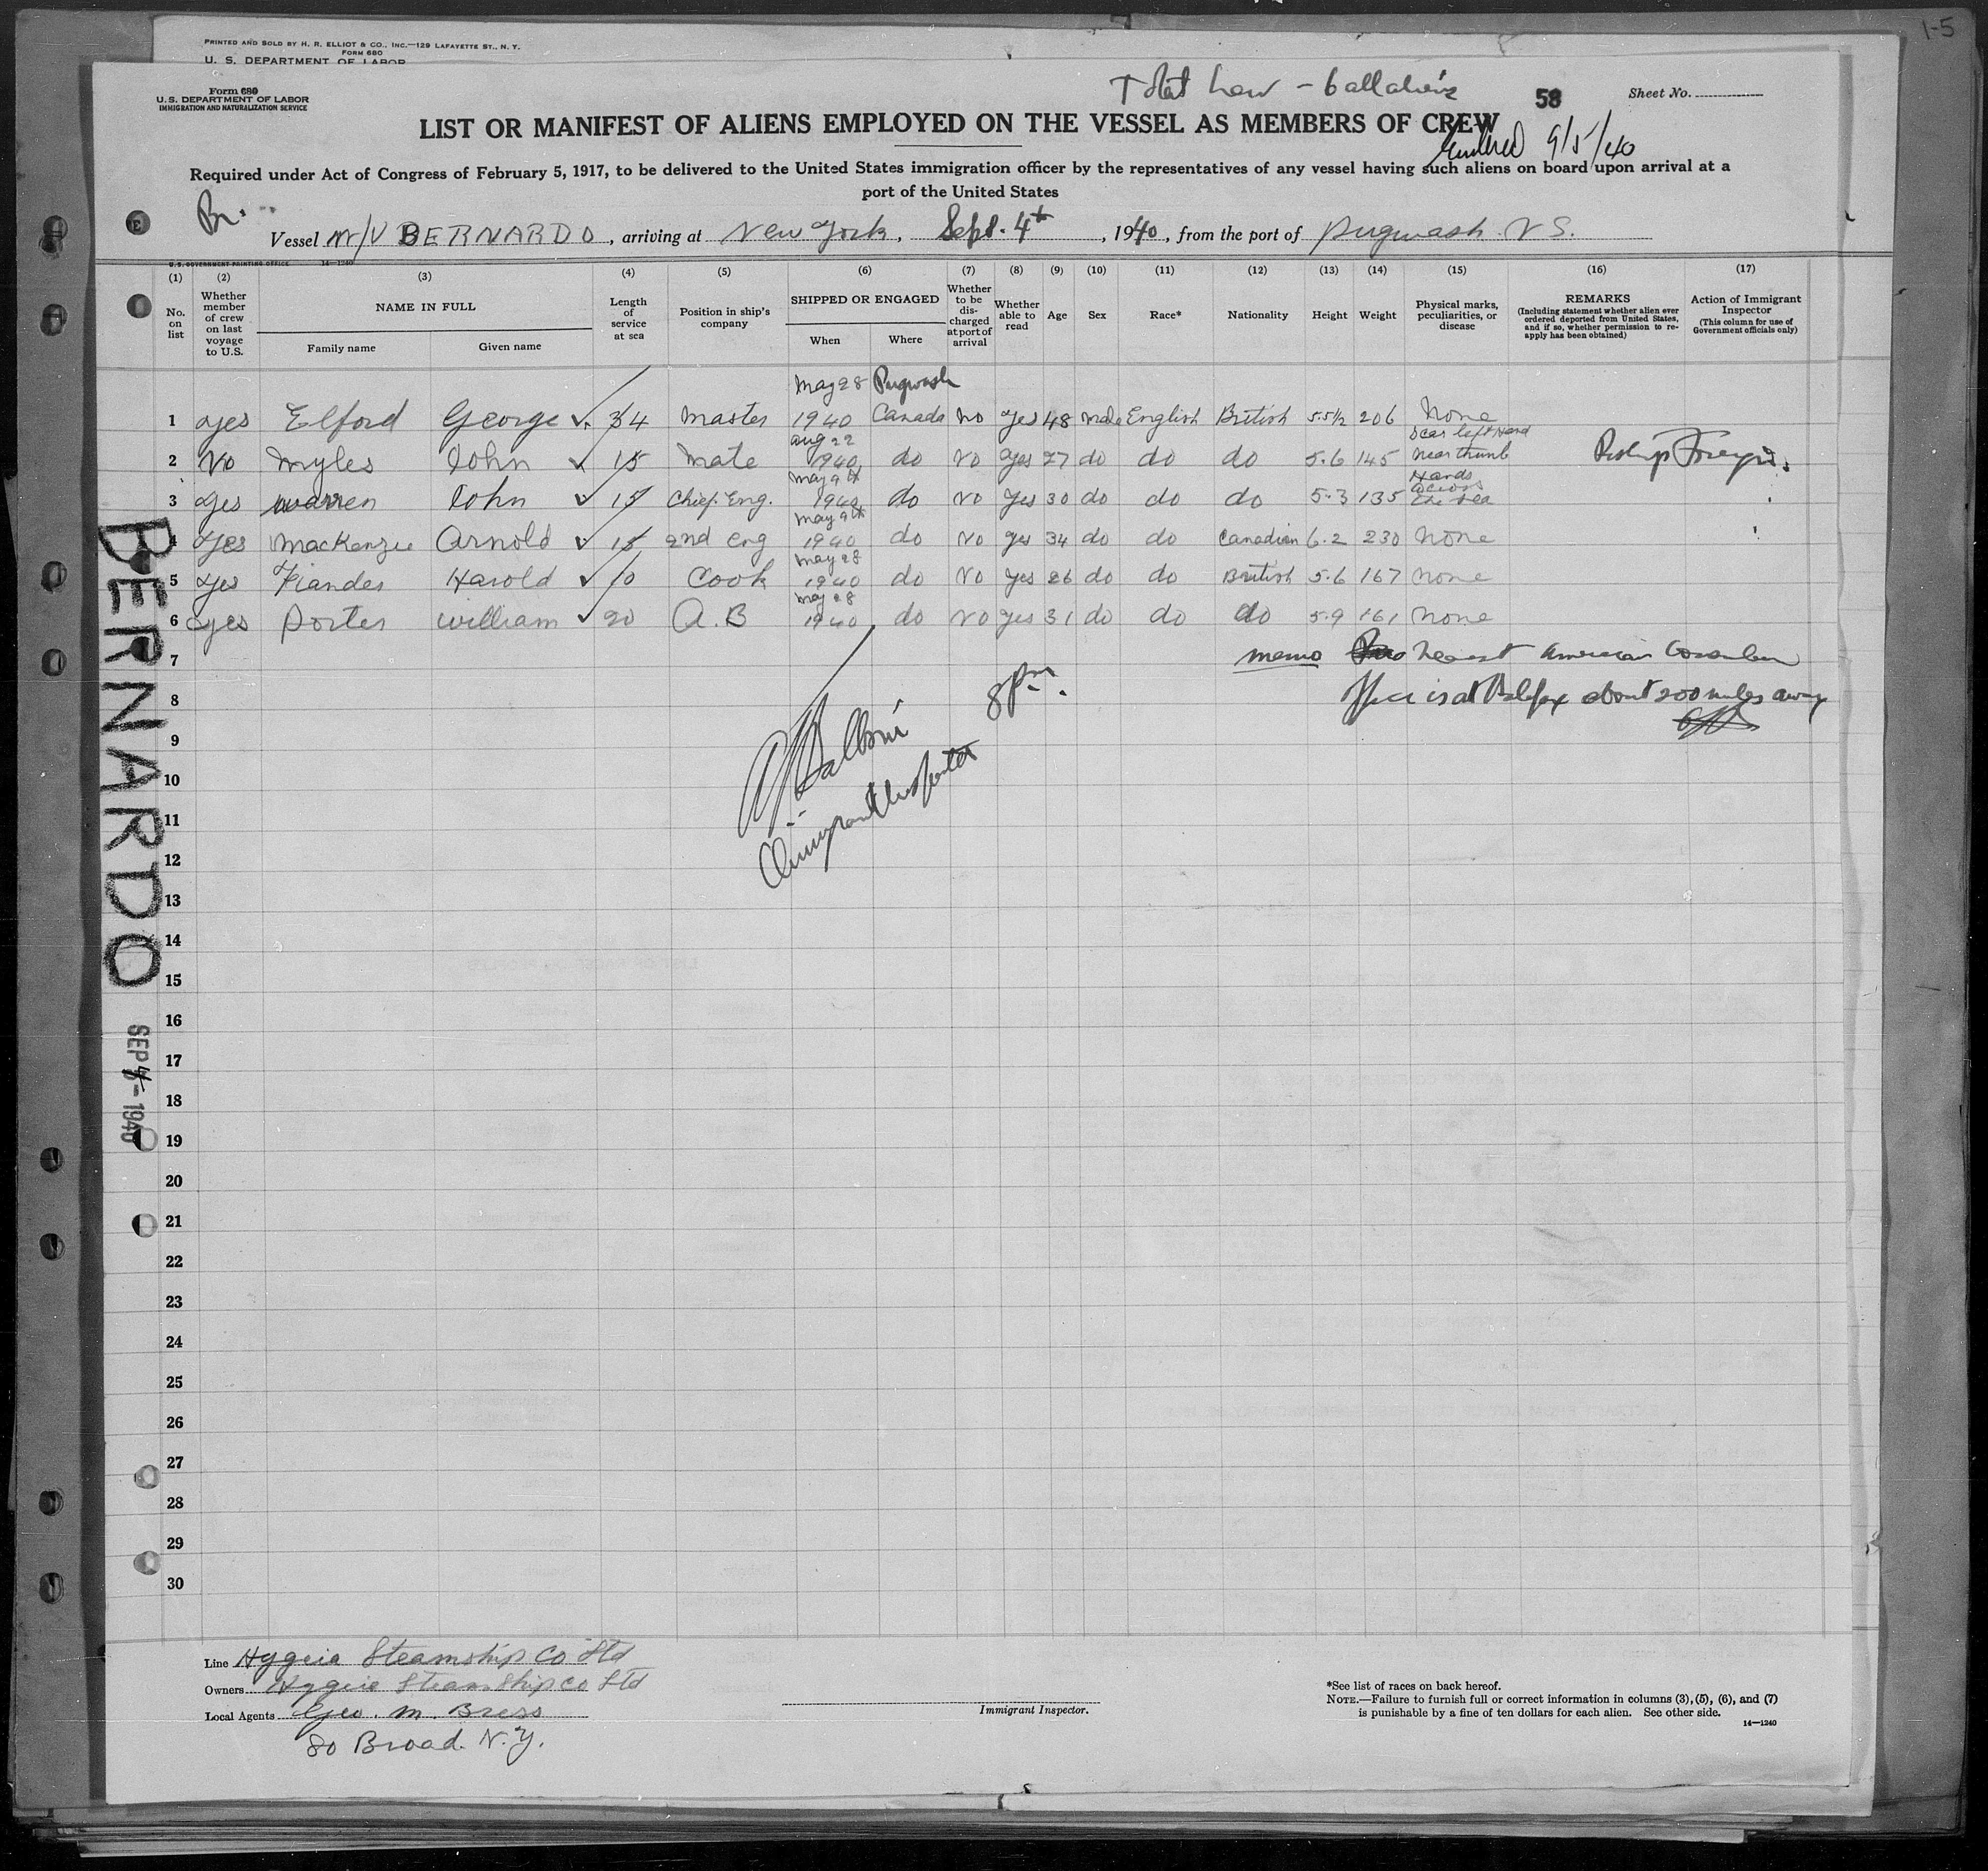 1-5
PRINTED AND SOLD BY H. R. ELLIOT & CO., INC.—129 LAFAYETTE ST., N. Y.
FORM 680
U. S. DEPARTMENT OF LABOR
Form 680
U.S. DEPARTMENT OF LABOR
IMMIGRATION AND NATURALIZATION SERVICE
Total crew - 6 all aliens
58
Sheet No.
LIST OR MANIFEST OF ALIENS EMPLOYED ON THE VESSEL AS MEMBERS OF CREW
9/5/40
Required under Act of Congress of February 5, 1917, to be delivered to the United States immigration officer by the representatives of any vessel having such aliens on board upon arrival at a
port of the United States
Br.
Vessel M/V BERNARDO, arriving at New York, Sept. 4th, 1940, from the port of Pugwash N S.
U.S. GOVERNMENT PRINTING OFFICE 14—1240
(1) (2) (3) (4) (5) (6) (7) (8) (9) (10) (11) (12) (13) (14) (15) (16) (17)
No. on list
Whether member of crew on last voyage to U.S.
NAME IN FULL
Family name Given name
Length of service at sea
Position in ship's company
SHIPPED OR ENGAGED
When Where
Whether to be discharged at port of arrival
Whether able to read
Age
Sex
Race*
Nationality
Height
Weight
Physical marks, peculiarities, or disease
REMARKS
(Including statement whether alien ever ordered deported from United States, and if so, whether permission to re-apply has been obtained)
Action of Immigrant Inspector
(This column for use of Government officials only)
May 28 Pugwash
1 yes Elford George 34 Master 1940 Canada No yes 48 Male English British 5.5½ 206 None
Aug 22 Scar left Hand
2 No Myles John 15 Mate 1940 do No yes 27 do do do 5.6 145 near thumb
May 9th Hands across
3 yes Warren John 15 Chief Eng. 1940 do No yes 30 do do do 5.3 135
May 9th
4 yes MacKenzie Arnold 15 2nd Eng 1940 do No yes 34 do do Canadian 6.2 230 None
May 28
5 yes Fiander Harold 10 Cook 1940 do No yes 26 do do British 5.6 167 None
May 28
6 yes Porter William 20 A.B 1940 do No yes 31 do do do 5.9 161 None
7 memo nearest American Consular
8 office is at Halifax about 200 miles away
8 pm.
Immigrant Inspector
9
10
11
12
13
14
15
16
17
18
19
20
21
22
23
24
25
26
27
28
29
30
BERNARDO
SEP 4 - 1940
Line Hygeia Steamship Co Ltd
Owners Hygeia Steamship Co Ltd
Local Agents Geo. M. Bress
80 Broad. N.Y.
Immigrant Inspector.
*See list of races on back hereof.
NOTE.—Failure to furnish full or correct information in columns (3), (5), (6), and (7)
is punishable by a fine of ten dollars for each alien. See other side.
14—1240